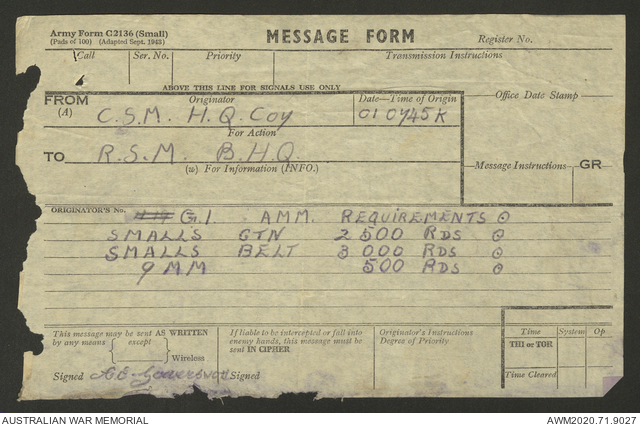 Army Form C2136 (Small)
(Pads of 100) (Adapted Sept. 1943)
MESSAGE FORM
Register No.
Call Ser. No. Priority Transmission Instructions
ABOVE THIS LINE FOR SIGNALS USE ONLY
FROM Originator Date—Time of Origin Office Date Stamp
(A) C.S.M. H.Q. Coy 010745K
For Action
TO R.S.M. B.H.Q.
(w) For Information (INFO.) Message Instructions GR
ORIGINATOR'S No. G.1. AMM. REQUIREMENTS ⊙
SMALLS CTN 2500 RDS ⊙
SMALLS BELT 3000 RDS ⊙
9 MM 500 RDS ⊙
This message may be sent AS WRITTEN
by any means except
Wireless
Signed
If liable to be intercepted or fall into
enemy hands, this message must be
sent IN CIPHER
Signed
Originator's Instructions
Degree of Priority
Time System Op
THI or TOR
Time Cleared
AUSTRALIAN WAR MEMORIAL AWM2020.71.9027